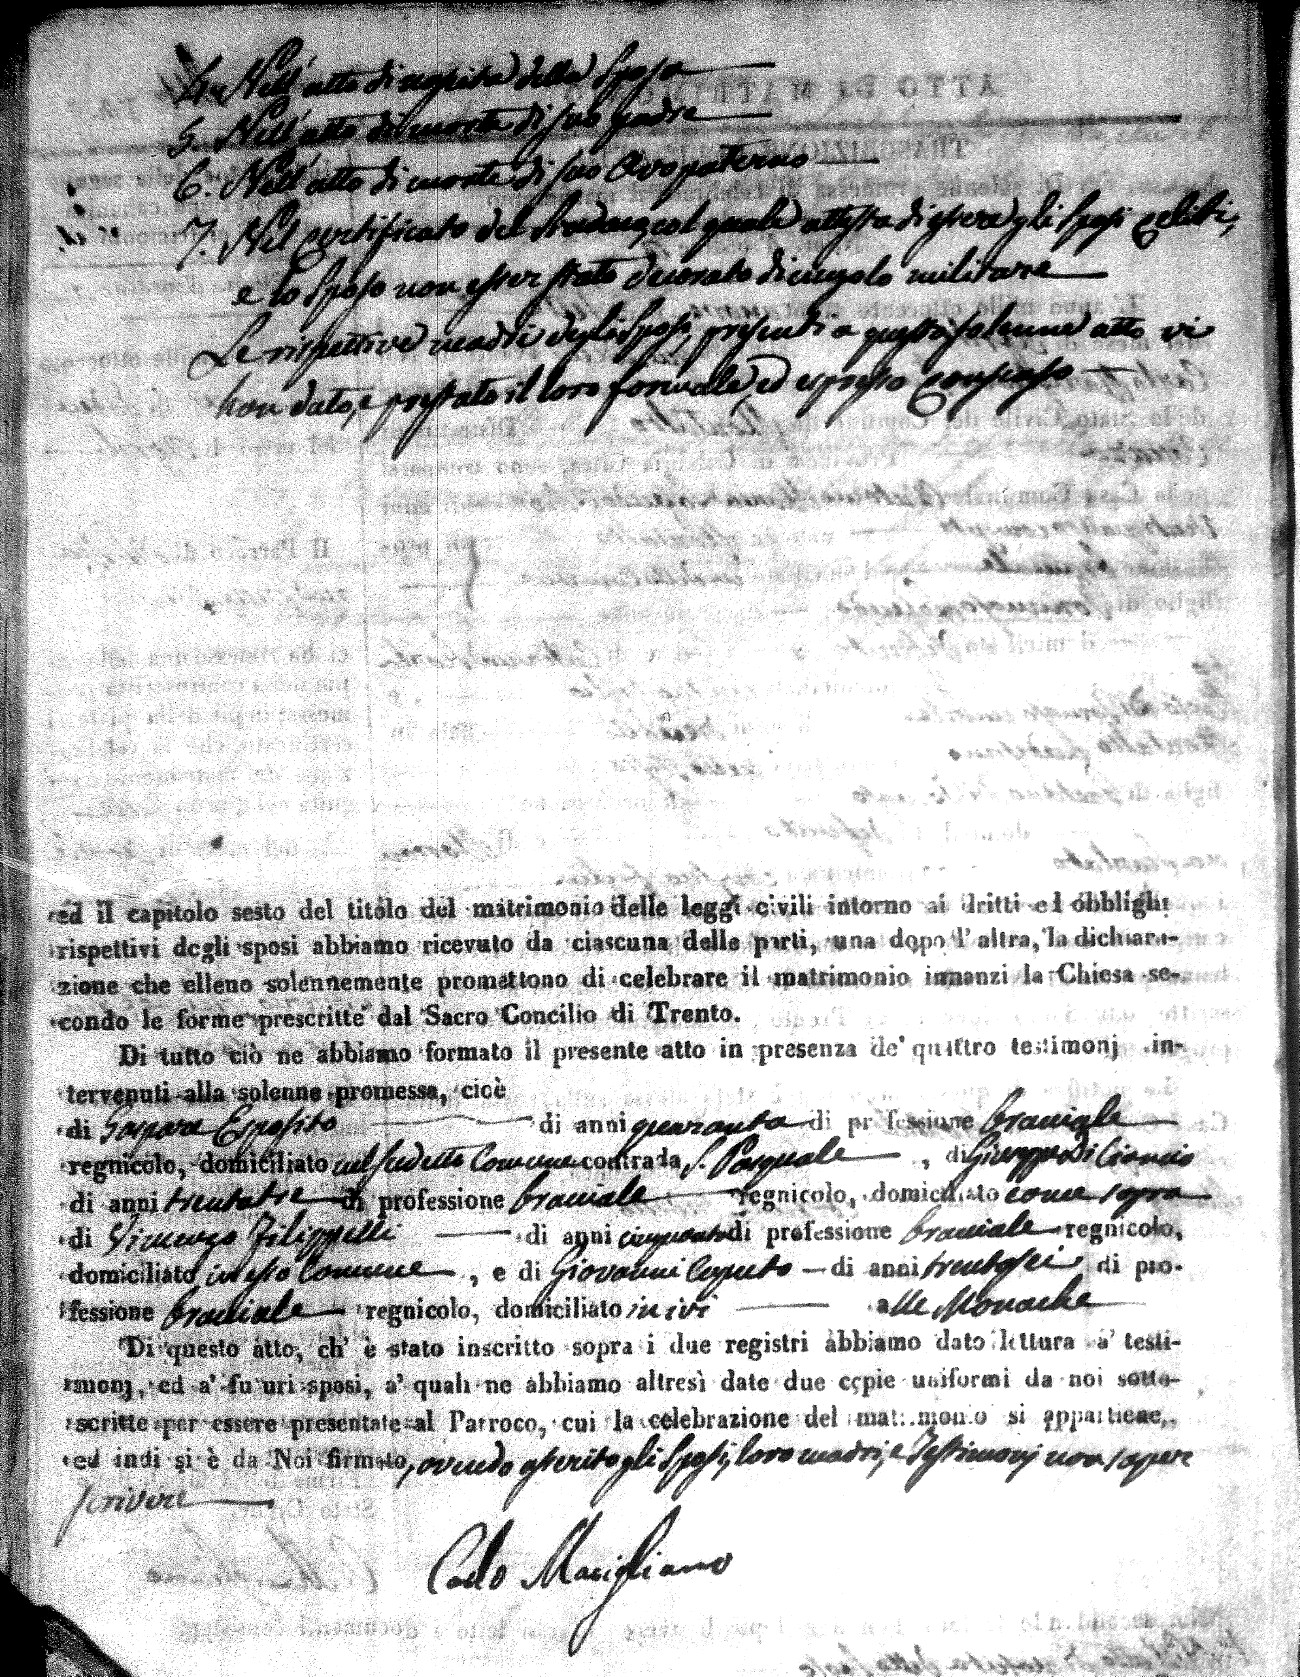 4. Nell'atto di nascita della Sposa
5. Nell'atto di morte di suo padre
6. Nell'atto di morte di suo Avo paterno
7. Nel certificato del Sindaco, col quale attesta di essere gli Sposi celibi,
e lo Sposo non esser stato decorato di militare
Le rispettive madri degli Sposi, presenti a questo solenne atto vi
han dato, e prestato il loro formale, ed espresso consenso
ed il capitolo sesto del titolo del matrimonio delle leggi civili intorno ai dritti ed obblighi
rispettivi degli sposi abbiamo ricevuto da ciascuna delle parti, una dopo l'altra, la dichiara-
zione che elleno solennemente promettono di celebrare il matrimonio innanzi la Chiesa se-
condo le forme prescritte dal Sacro Concilio di Trento.
Di tutto ciò ne abbiamo formato il presente atto in presenza de' quattro testimonj in-
tervenuti alla solenne promessa, cioè
di Gaspare Esposito di anni quaranta di professione bracciale
regnicolo, domiciliato nel sudetto Comune contrada S. Pasquale, di Giuseppe Di Ciancio
di anni trentatre di professione bracciale regnicolo, domiciliato come sopra
di Vincenzo Filippelli di anni cinquanta di professione bracciale regnicolo,
domiciliato in esso Comune, e di Giovanni Caputo di anni trentasei di pro-
fessione bracciale regnicolo, domiciliato in ivi alle Monache
Di questo atto, ch' è stato inscritto sopra i due registri abbiamo dato lettura a' testi-
monj, ed a' futuri sposi, a' quali ne abbiamo altresì date due copie uniformi da noi sotto-
scritte per essere presentate al Parroco, cui la celebrazione del matrimonio si appartiene,
ed indi si è da Noi firmato, avendo asserito gli Sposi, loro madri, e Testimonj non sapere
scrivere
Carlo Marigliano